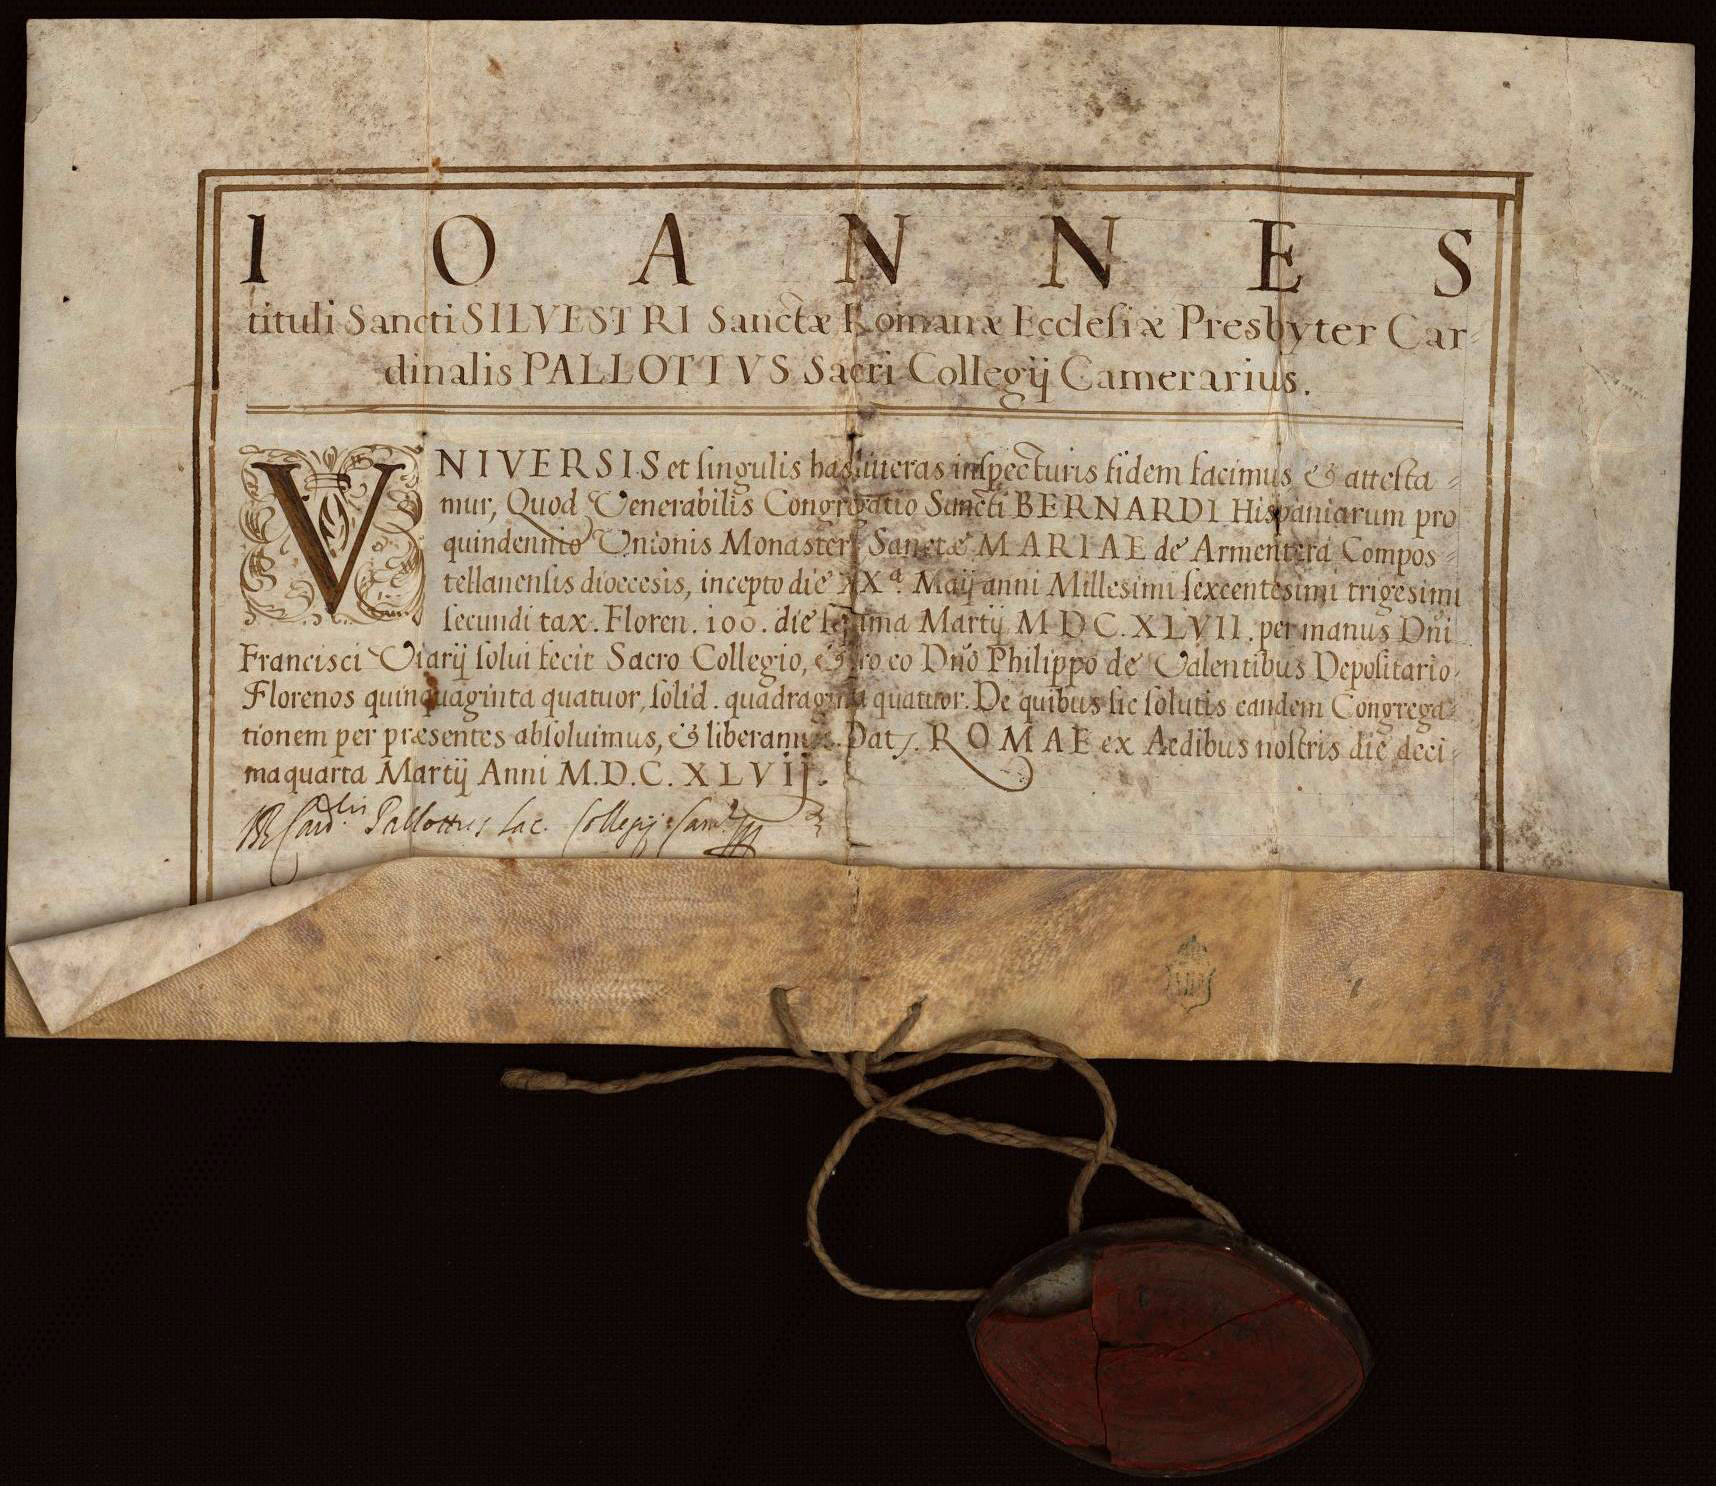 IOANNES
tituli Sancti SILVESTRI Sanctæ Romanæ Ecclesiæ Presbyter Car-
dinalis PALLOTTVS Sacri Collegij Camerarius.
VNIVERSIS et singulis has litteras inspecturis fidem facimus & attesta-
mur, Quod Venerabilis Congregatio Sancti BERNARDI Hispaniarum pro
quindennio Vnionis Monasterij Sanctæ MARIAE de Armentera Compos-
tellanensis dioecesis, incepto die XXª. Maij anni Millesimi sexcentesimi trigesimi
secundi tax. Floren. 100. die septima Martij MDC.XLVII. per manus Dñi
Francisci Viarij solui fecit Sacro Collegio, & pro eo Dño Philippo de Valentibus Depositario
Florenos quinquaginta quatuor, solid. quadraginta quatuor. De quibus sic solutis eandem Congrega-
tionem per præsentes absoluimus, & liberamus. Dat. ROMAE ex Aedibus nostris die deci-
maquarta Martij Anni M.D.C.XLVIJ.
Card.lis Pallottus Sac. Collegij Cam.s